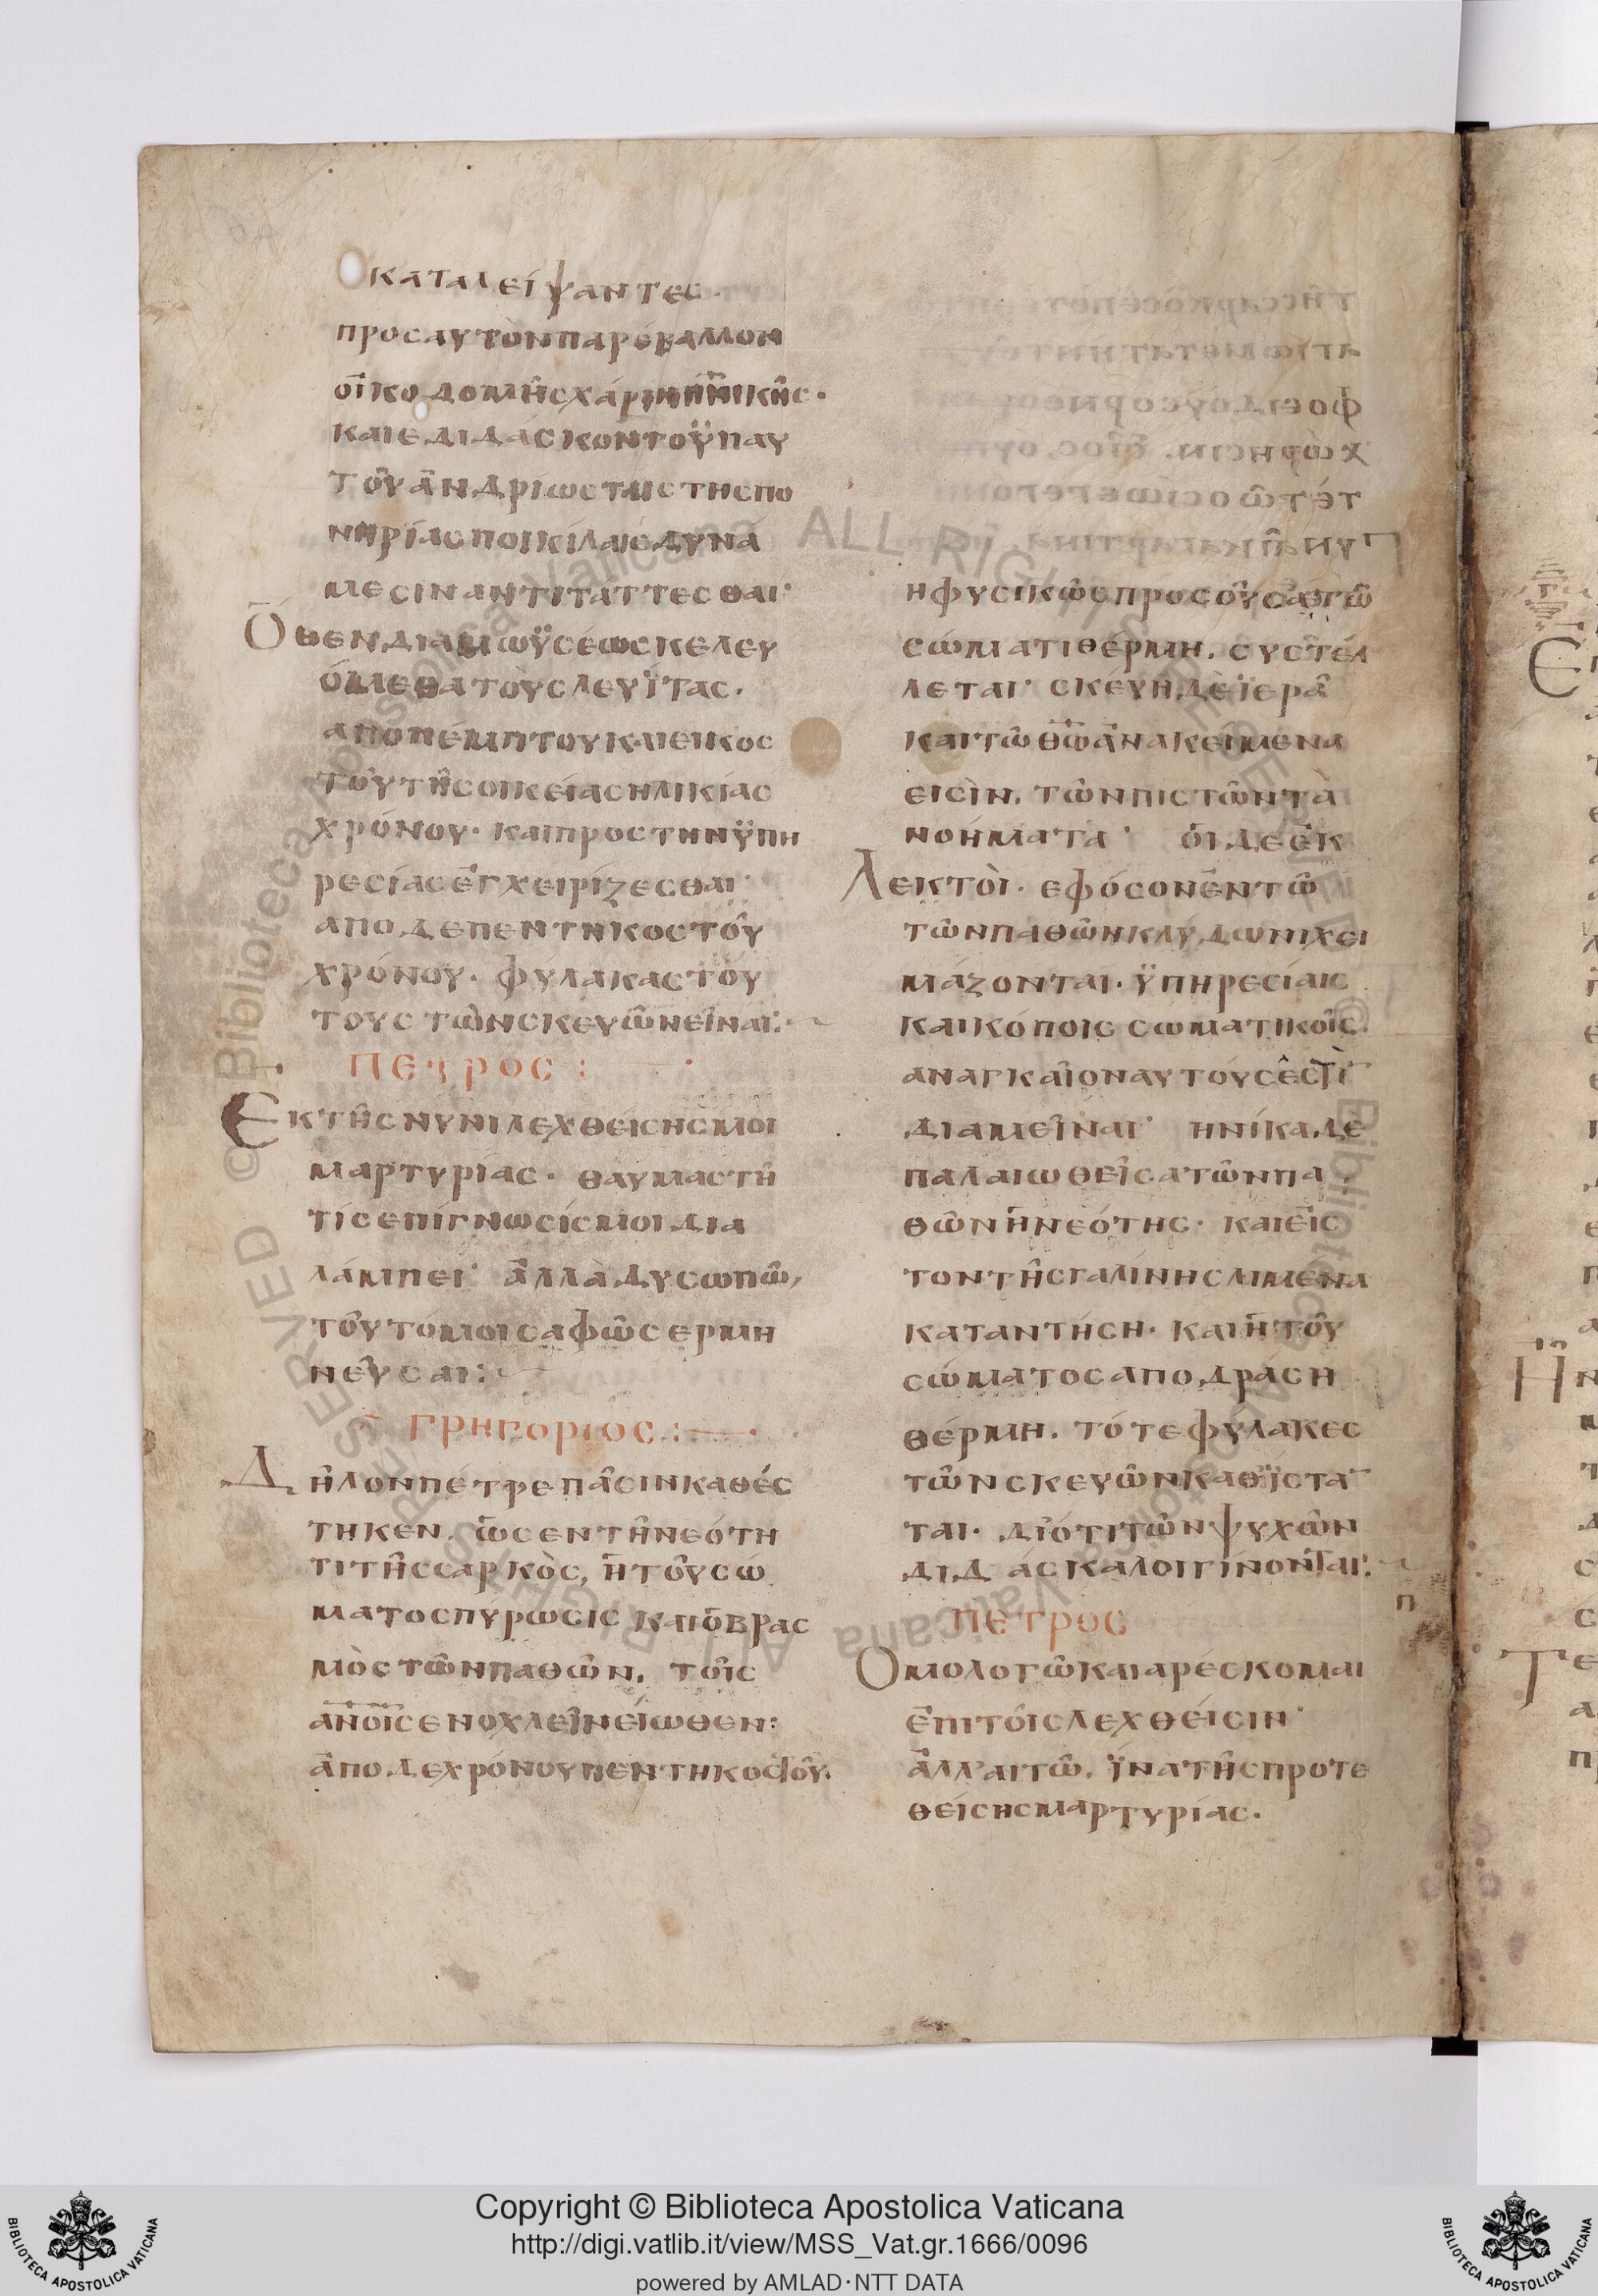 καταλείψαντες·
προσαυτὸνπαρέβαλλον
οἰκοδομῆςχάρινπνικῆς·
καιεδιδάσκοντοϋπαυ
τοῦἀνδρίωςταιςτηςπο
νηρίαςποικίλαιςδυνά
μεσιναντιτάττεσθαι·
Ὅθενδιαμωϋσέωςκελευ
όμεθατοὺςλευΐτας·
αποπέμπτουκαιεικος
τοῦτῆςοικείαςηλικίας
χρόνου· καιπροςτηνϋπη
ρεσίασἐγχειρίζεσθαι·
αποδεπεντηκοςτοῦ
χρόνου· φύλακαςτού
τουςτῶνσκευῶνεἶναι:
πετρος:
Εκτῆςνυνιλεχθείσηςμοι
μαρτυρίας· θαυμαστῆ
τίςεπίγνωσίςμοιδια
λάμπει· ἀλλὰδυσωπῶ,
τοῦτόμοισαφῶςερμη
νεῦσαι:
γρηγοριος:
Δῆλονπέτρεπᾶσινκαθές
τηκεν. ὡςεντῆνεότη
τιτῆςσαρκὸς, ἡτοῦσώ
ματοςπύρωσις καιὁβρας
μὸςτῶνπαθῶν, τοῖς
ἀνοιςενοχλεῖνείωθεν:
ἀποδεχρόνουπεντηκοστοῦ.
ηφυσικῶςπροσοὖσαἐντῶ
σώματιθέρμη. συστέλ
λεται· σκεύηδὲϊερὰ
καιτῶθῶἀνακείμενα
εισὶν. τῶνπιστῶντὰ
νοήματα· ὁιδεἐκ
Λεκτοὶ· εφόσονἐντῶ
τῶνπαθῶνκλύδωνιχει
μάζονται· ϋπηρεσίαις
καικόποιςσωματικοῖς.
αναγκαῖοναυτούςἐστὶ
διαμεῖναι· ηνίκαδε
παλαιωθεῖσατῶνπα
θῶνἡνεότης· καιεἰς
τοντῆςγαλίνηςλιμένα
καταντήση· καιἡτοῦ
σώματοςαποδράση
θέρμη. τότεφύλακες
τῶνσκευῶνκαθΐστα
ται· διότιτῶνψυχῶν
διδάσκαλοιγίνονται:
πετρος
Ομολογῶκαιαρέσκομαι
ἐπιτοῖςλεχθείσιν·
ἀλλαιτῶ. ΐνατῆςπροτε
θείσηςμαρτυρίας·
Copyright © Biblioteca Apostolica Vaticana
http://digi.vatlib.it/view/MSS_Vat.gr.1666/0096
powered by AMLAD·NTT DATA
BIBLIOTECA APOSTOLICA VATICANA
BIBLIOTECA APOSTOLICA VATICANA